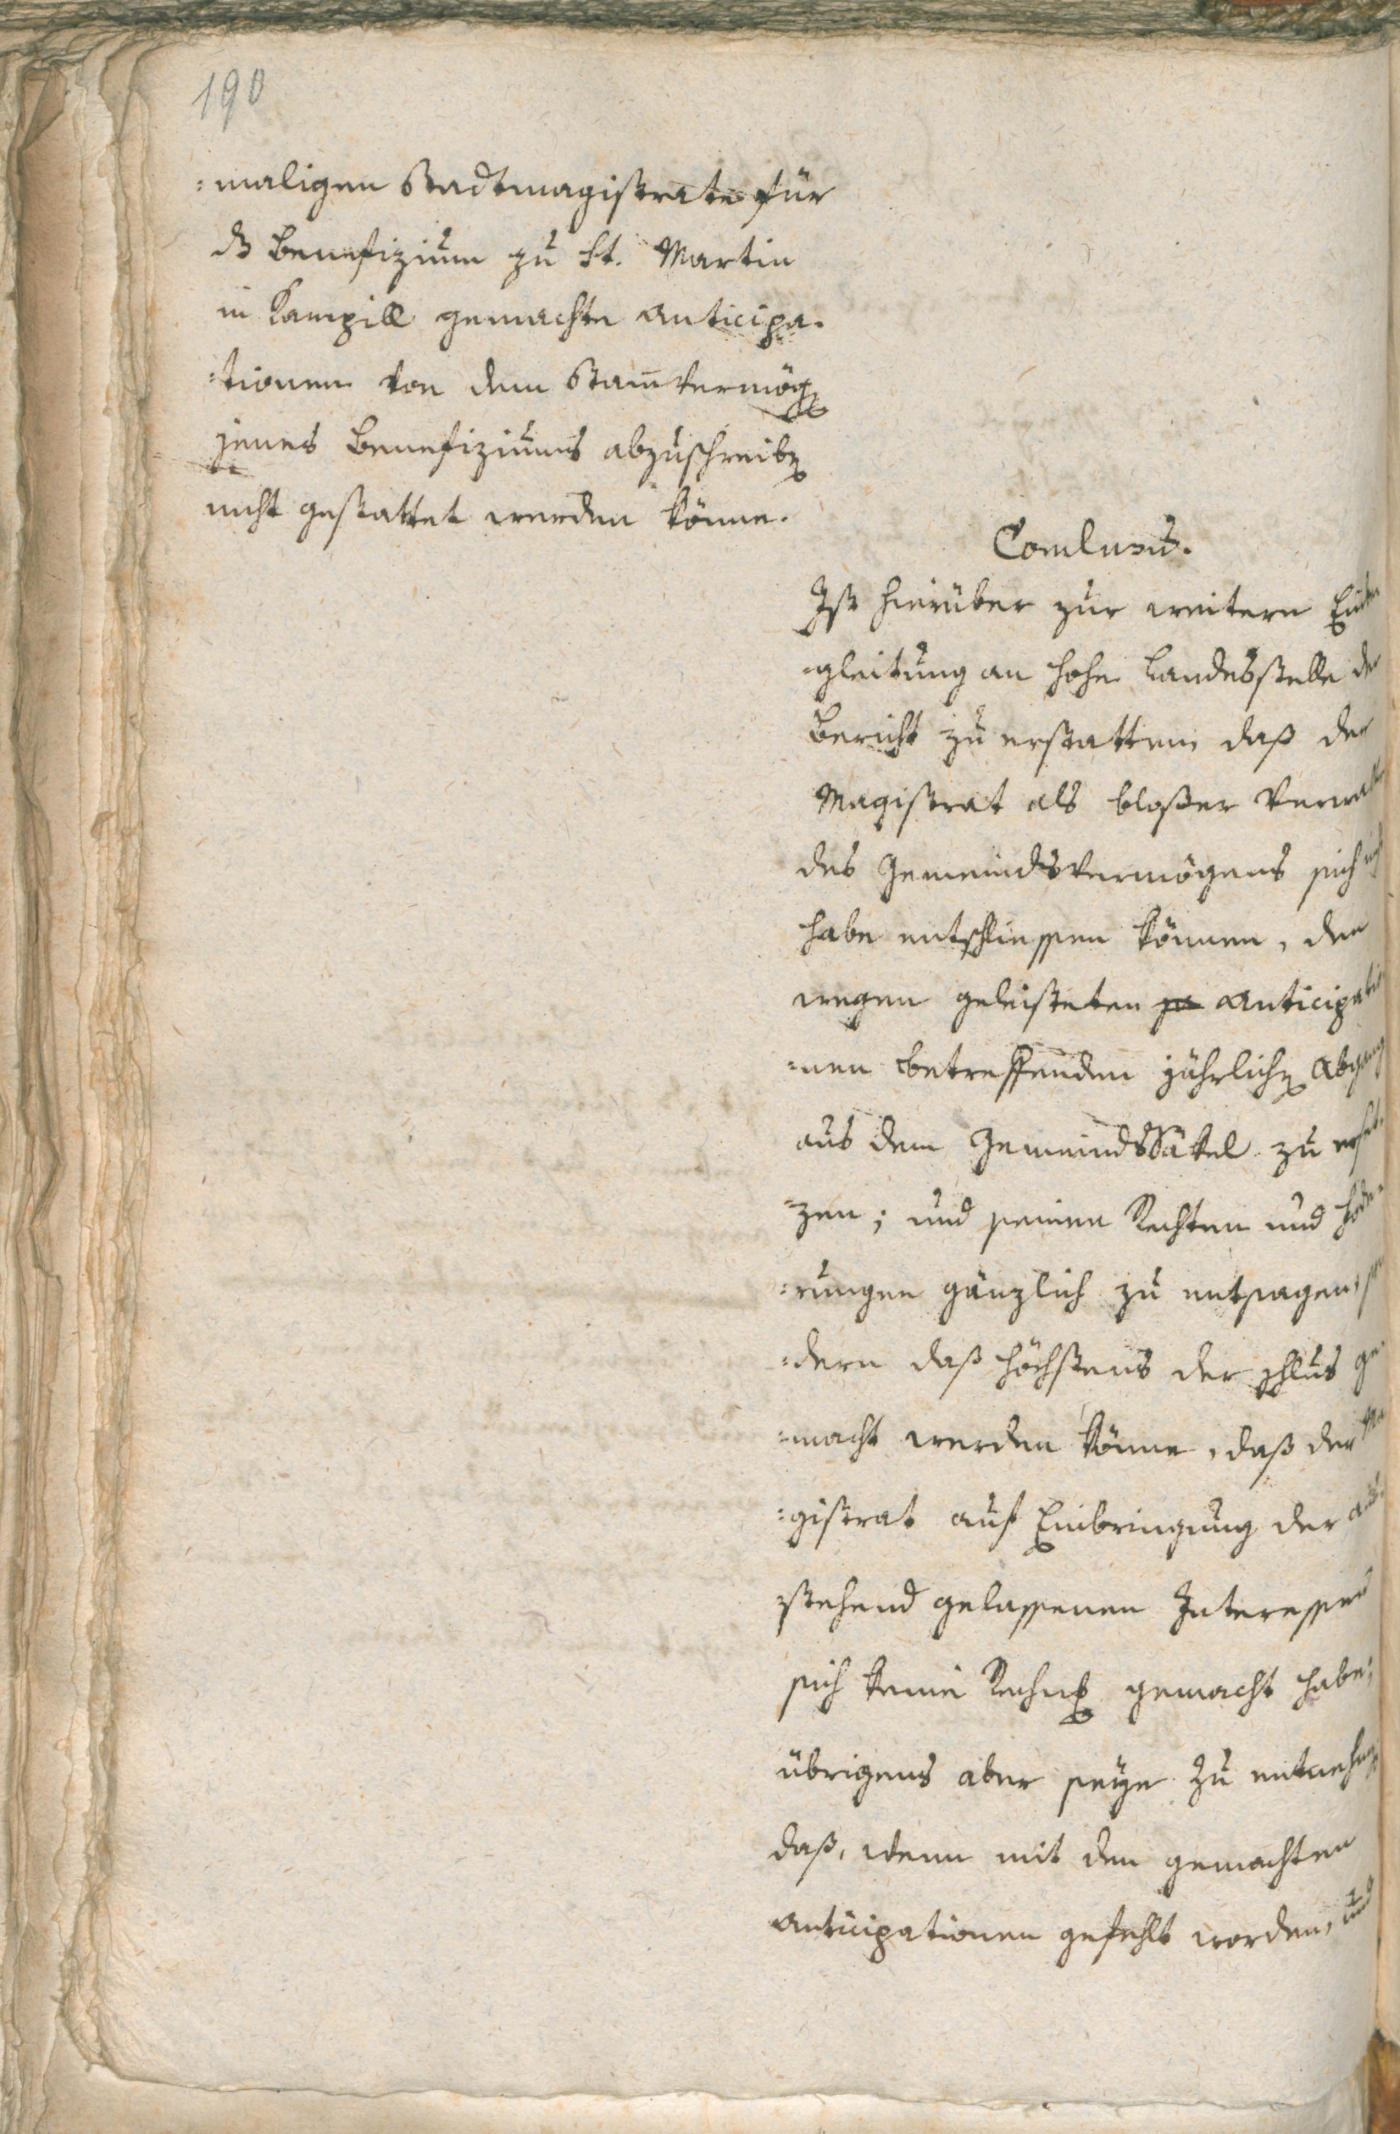 190
:maligen Stadtmagistrate für
dß Benefizium zu St. Martin
in Kampill gemachte Anticipa.
:tionen von dem Stam̄vermög
jenes Benefiziums abzuschreib
nicht gestattet werden könne.
Conlusus.
Ist hierüber zur weitern Ein
:gleitung an hohe Landesstelle der
Bericht zu erstatten, daß der
Magistrat als bloßer Verwalt
des Gemeindsvermögens sich nicht
habe entschliessen können, den
wegen geleisteten Anticipatio
:nen betreffenden jährlich Abgang
aus dem GemeindsSäkel zu erset.
:zen; und seinen Rechten und Forde
:rungen gänzlich zu entsagen, son
:dern daß höchstens der Schlus ge
:macht werden könne, daß der Ma
:gistrat auf Einbringung der aus.
stehend gelassenen Interessen
sich keine Rechng gemacht habe;
übrigens aber seye zu entnehmen
daß, wenn mit den gemachten
Anticipationen gefehlt worden, und